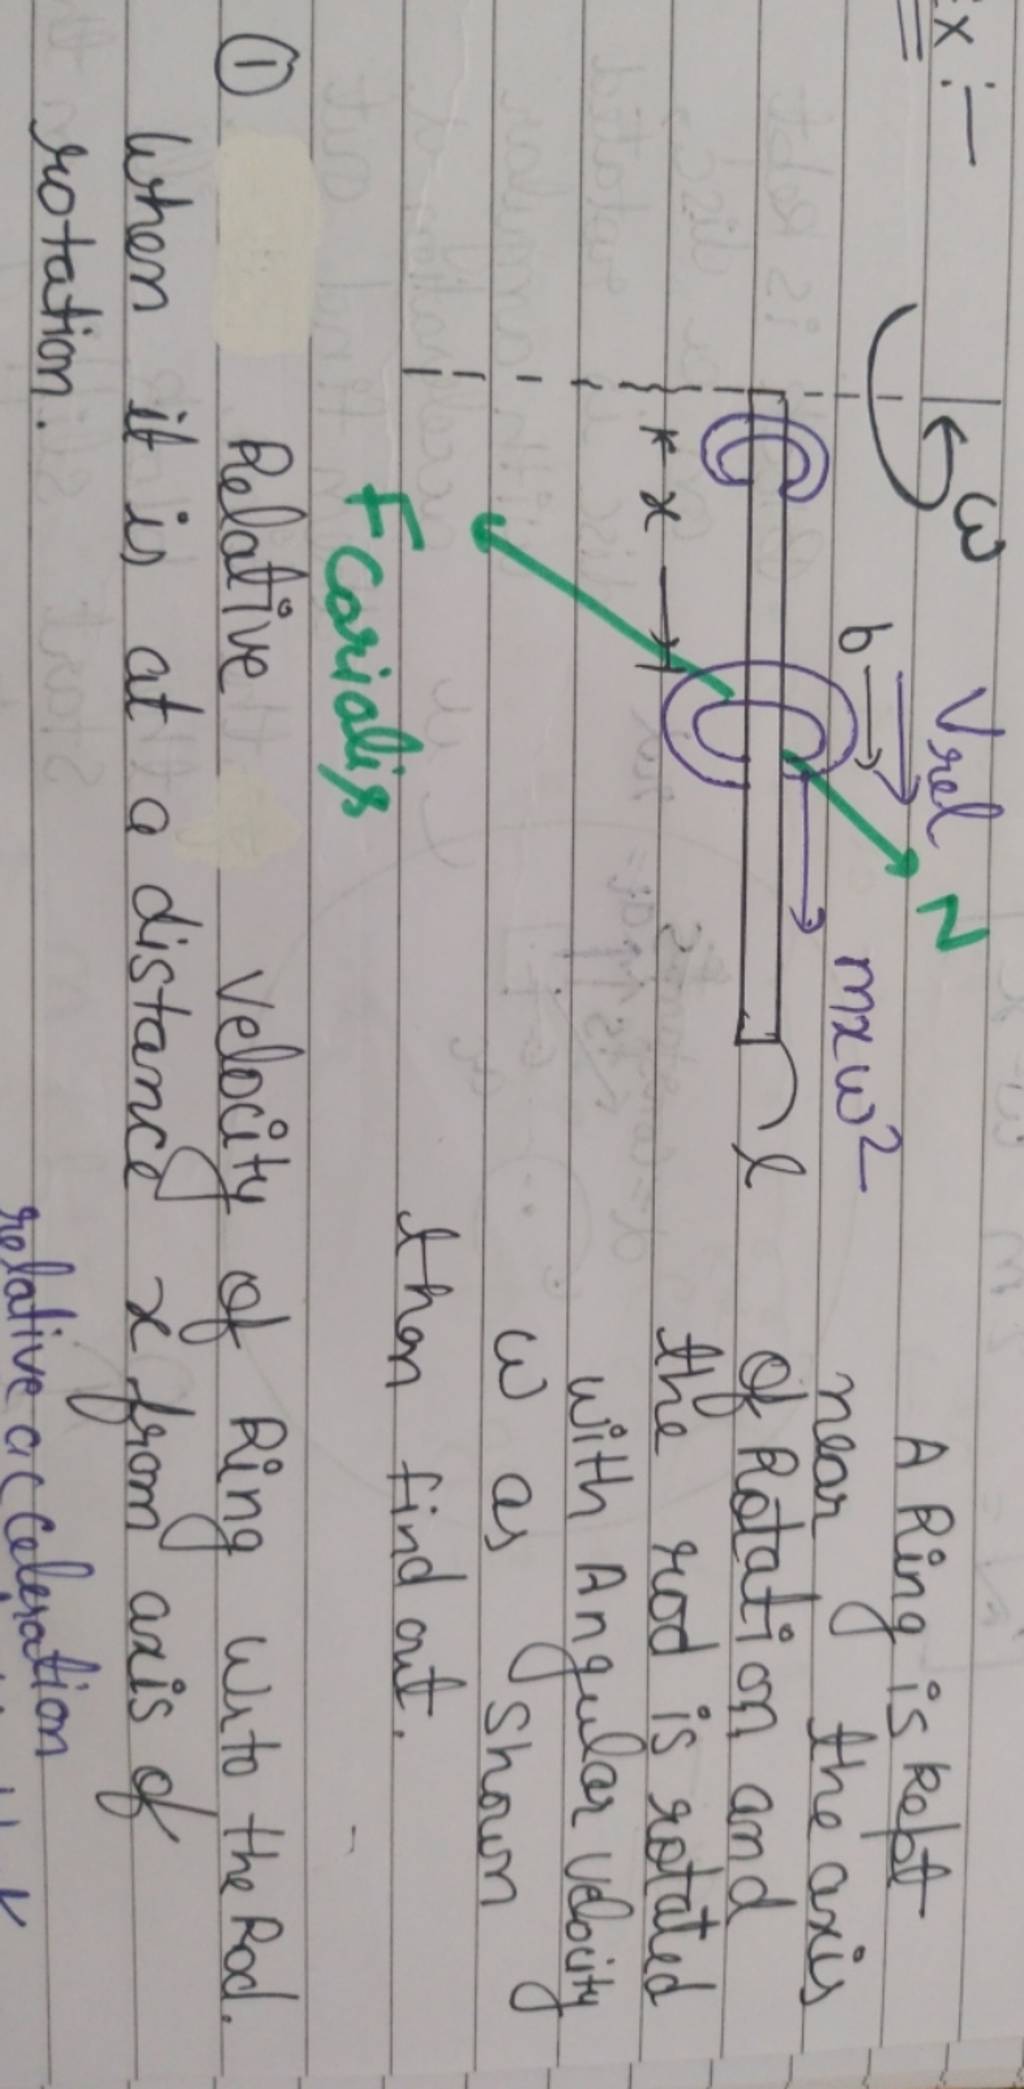 Ex :-
ω
Vrel
N
b
mxω²
x
l
F Corialis
A Ring is kept
near the axis
of Rotation and
the rod is rotated
with Angular Velocity
ω as shown
then find out.
① Relative Velocity of Ring w.r.to the Rod.
When it is at a distance x from axis of
rotation.
relative acceleration